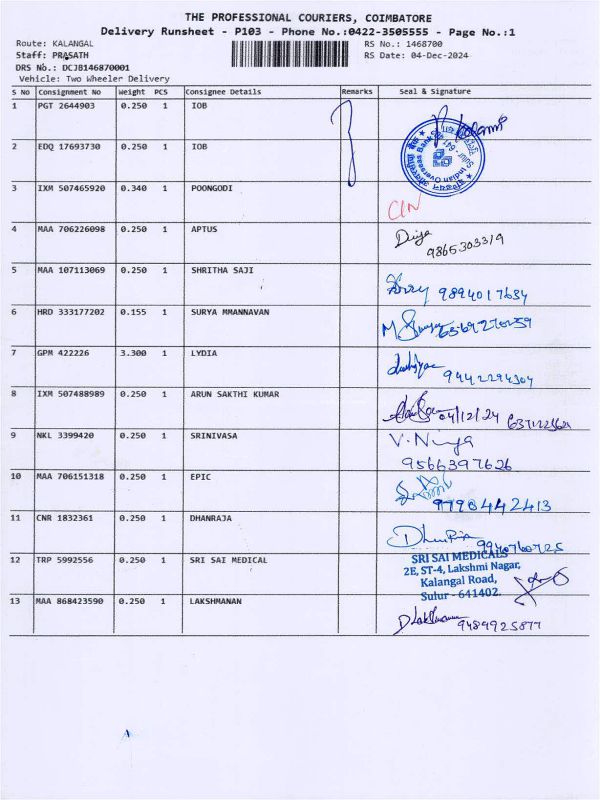 THE PROFESSIONAL COURIERS, COIMBATORE
Delivery Runsheet - P103 - Phone No.:0422-3505555 - Page No.:1
Route: KALANGAL
Staff: PRASATH
DRS No.: DCJB146870001
Vehicle: Two Wheeler Delivery
RS No.: 1468700
RS Date: 04-Dec-2024
S No Consignment No Weight PCS Consignee Details Remarks Seal & Signature
1 PGT 2644903 0.250 1 IOB
2 EDQ 17693730 0.250 1 IOB
Indian Overseas Bank
3 IXM 507465920 0.340 1 POONGODI
4 MAA 706226098 0.250 1 APTUS
9865303319
5 MAA 107113069 0.250 1 SHRITHA SAJI
9894017634
6 HRD 333177202 0.155 1 SURYA MMANNAVAN
7 GPM 422226 3.300 1 LYDIA
8 IXM 507488989 0.250 1 ARUN SAKTHI KUMAR 04/12/24
9 NKL 3399420 0.250 1 SRINIVASA
9566397626
10 MAA 706151318 0.250 1 EPIC
9790442413
11 CNR 1832361 0.250 1 DHANRAJA
12 TRP 5992556 0.250 1 SRI SAI MEDICAL
SRI SAI MEDICALS
2E, ST-4, Lakshmi Nagar,
Kalangal Road,
Sulur - 641402.
13 MAA 868423590 0.250 1 LAKSHMANAN
9489925877